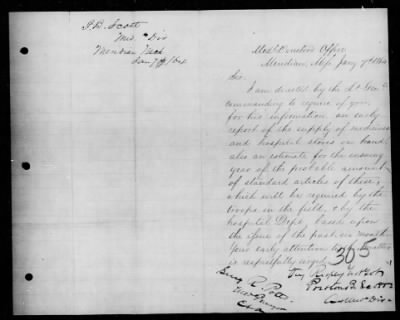 P. B. Scott
Med. Dir
Meridian
Jany 7th/64
Medl. Directors Office
Meridian, Miss Jany 7th 1864
Sir.
I am directed by the Lt Genl.
commanding to require of you,
for his information, an early
report of the supply of medicines
and hospital stores on hand;
also an estimate for the ensuing
year of the probable amount
of standard articles of these,
which will be required by the
troops in the field, & by the
hospital Dept. based upon
the issue of the past six months
Your early attention to this matter
is respectfully urged
305
Very Respy Yr Obt Svt
Preston B. Scott
Medl Dir.
Surg